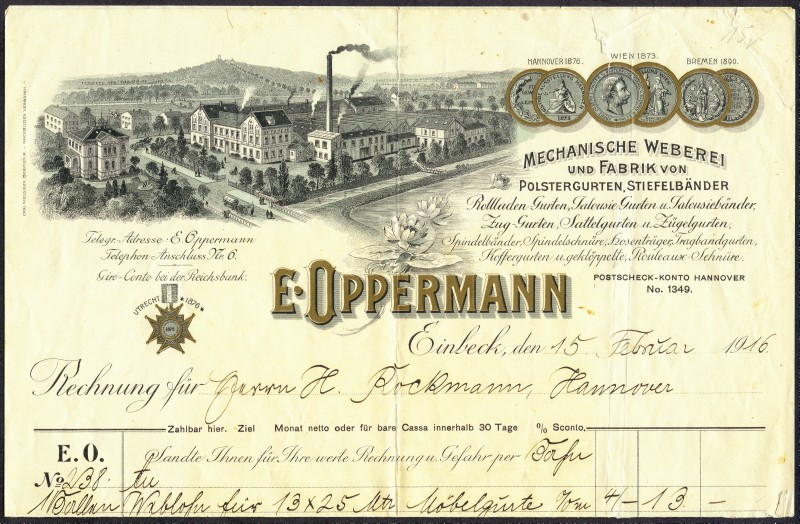 HANNOVER 1876. WIEN 1873. BREMEN 1890.
MECHANISCHE WEBEREI
UND FABRIK VON
POLSTERGURTEN, STIEFELBÄNDER
Rollladen Gurten, Jalousie Gurten u. Jalousiebänder,
Zug-Gurten, Sattelgurten u. Zügelgurten,
Spindelbänder, Spindelschnüre, Hosenträger, Tragbandgurten,
Koffergurten u. geklöppelte, Rouleaux-Schnüre.
POSTSCHECK-KONTO HANNOVER
No. 1349.
Telegr.-Adresse: E. Oppermann
Telephon-Anschluss Nr. 6.
Giro-Conto bei der Reichsbank.
UTRECHT 1876
E. OPPERMANN
Einbeck, den 15. Februar 1916.
Rechnung für Herrn H. Rockmann, Hannover
Zahlbar hier. Ziel Monat netto oder für bare Cassa innerhalb 30 Tage % Sconto.
E.O. Sandte Ihnen für Ihre werte Rechnung u. Gefahr per
No 238. An
1 Ballen Weblohn für 13 x 25 Mtr Möbelgurte 4/- 13 -